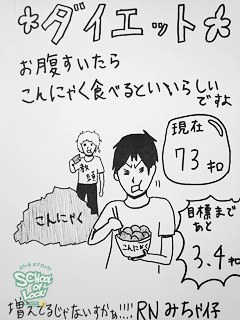 *ダイエット*
お腹すいたら
こんにゃく食べるといいらしい
ですよ
現在
73キロ
教頭
こんにゃく
こんにゃく
目標まで
あと
3.4キロ
SCHOOL OF LOCK!
増えてるじゃないすかぁ!!!! RN みちゃ仔